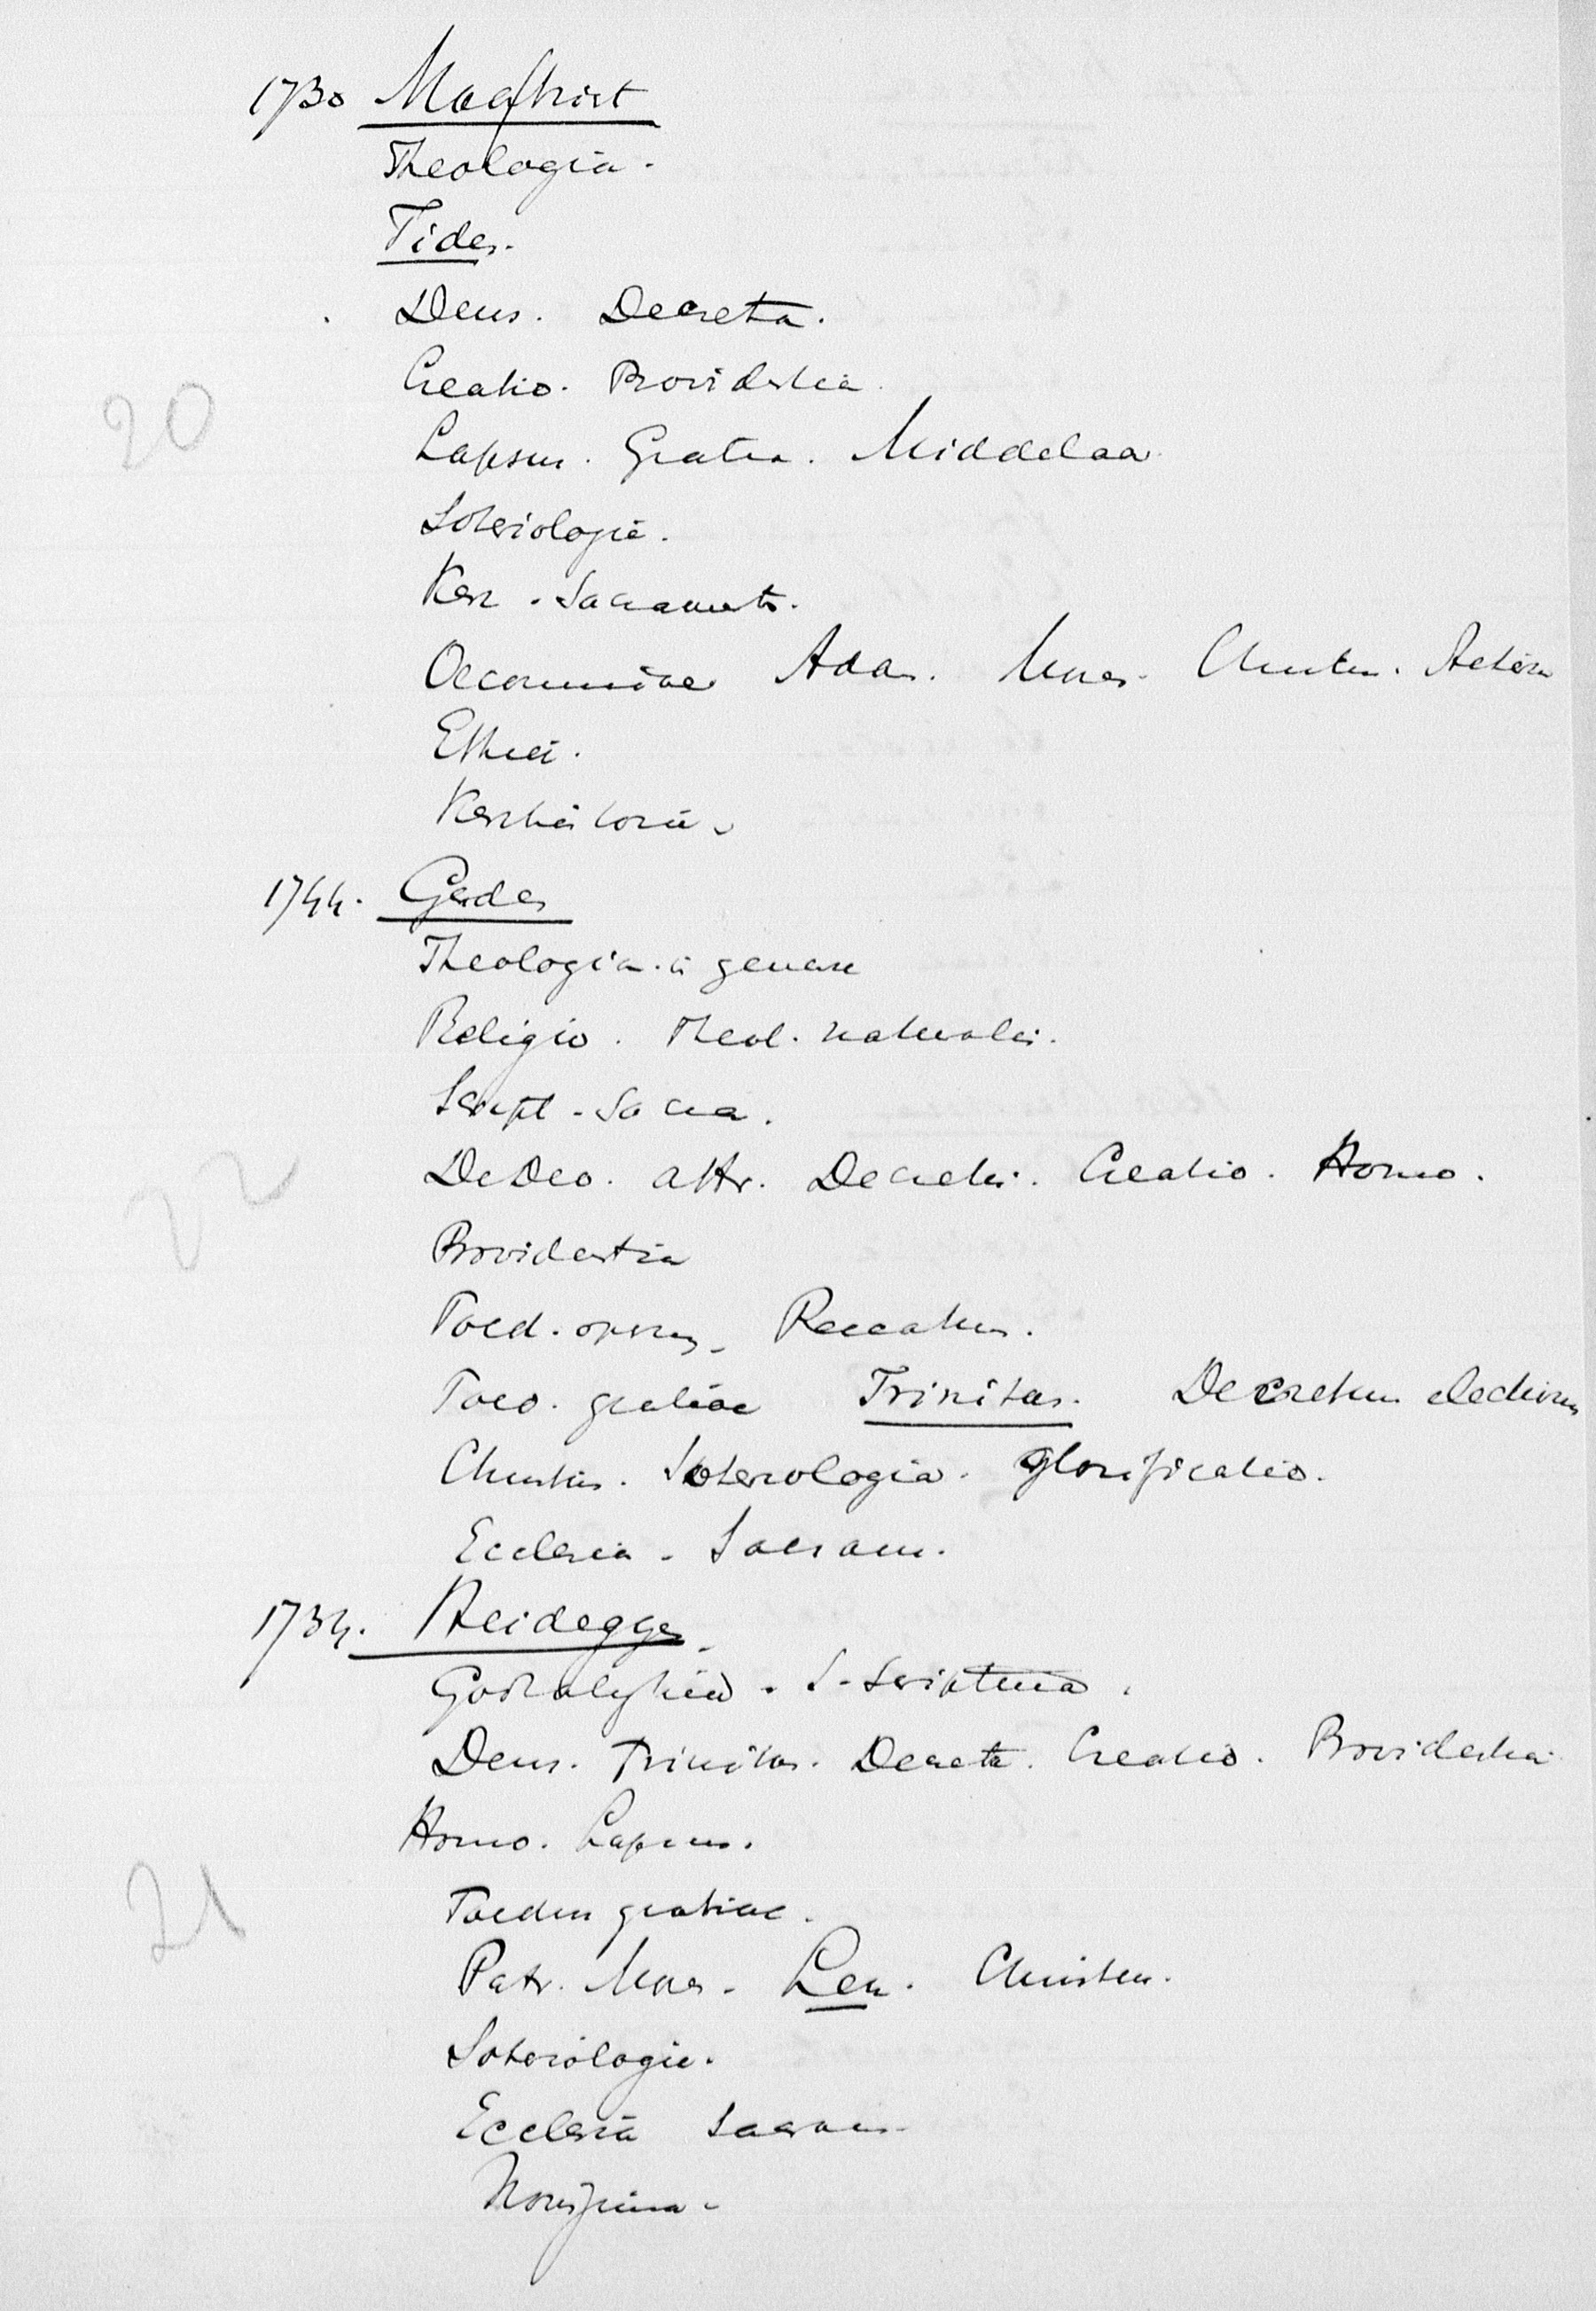 1730 Mastricht
Theologia.
Fides.
Deus. Decreta.
Creatio. Providentia.
20
Lapsus. Gratia. Middelaar
Soteriologie.
Kerk. Sacramenta.
Oeconomiae Adam. Mozes. Christus.
Ethiek.
1744. Gerdes
Theologia in genere
Religio. Theol. naturalis.
Script. Sacra.
De Deo. attr. Decretis. Creatio. Homo.
22
Providentia
Foed. operum. Peccatum.
Foed. gratiae Trinitas. Decretum electionis
Christus. Soteriologia. Glorificatio.
Ecclesia. Sacram.
1734. Heidegger.
S. Scriptura.
Deus. Trinitas. Decreta. Creatio. Providentia.
Homo. Lapsus.
21
Foedus gratiae.
Patr. Mozes. Lex. Christus.
Soteriologie.
Ecclesia Sacram.
Novissima.